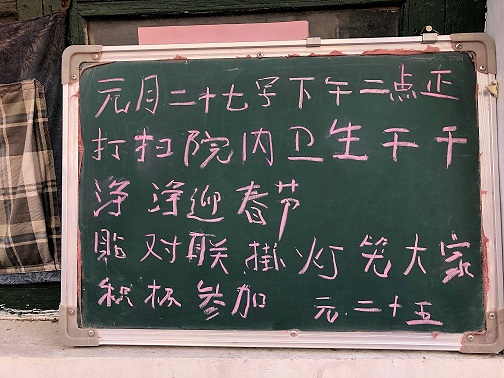 元月二十七号下午二点正
打扫院内卫生干干
净净迎春节
贴对联掛灯笼大家
积极参加 元.二十五